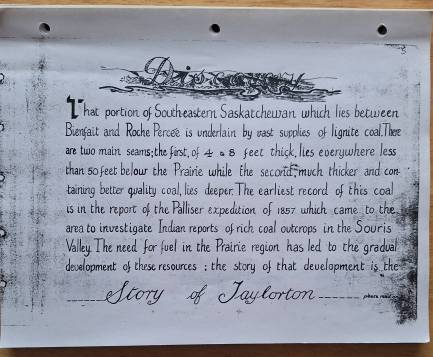 Discovery
That portion of Southeastern Saskatchewan which lies between
Bienfait and Roche Percée is underlain by vast supplies of lignite coal. There
are two main seams; the first, of 4 to 8 feet thick, lies everywhere less
than 50 feet below the Prairie while the second, much thicker and con-
taining better quality coal, lies deeper. The earliest record of this coal
is in the report of the Palliser expedition of 1857 which came to the
area to investigate Indian reports of rich coal outcrops in the Souris
Valley. The need for fuel in the Prairie region has led to the gradual
development of these resources : the story of that development is the
Story of Taylorton